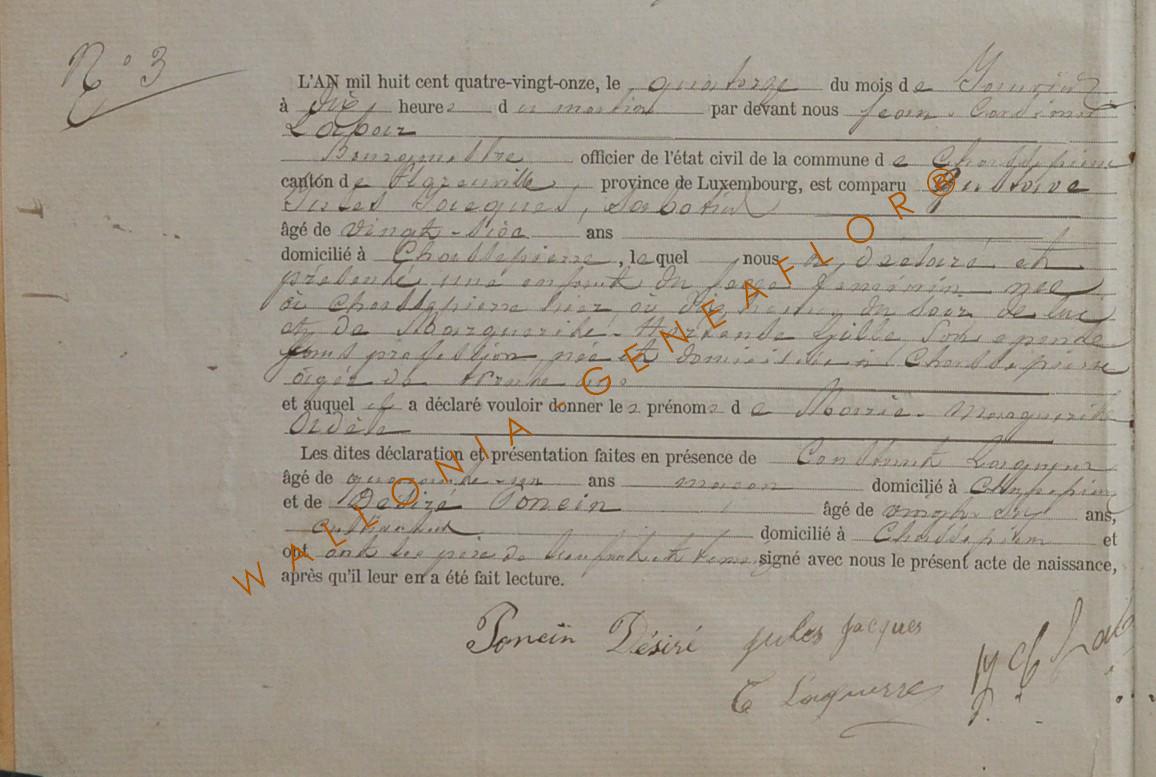 N° 3
L'AN mil huit cent quatre-vingt-onze, le quatorze du mois de Janvier
à dix heures du matin par devant nous Jean
Lapoir
Bourgmestre officier de l'état civil de la commune de Chassepierre
canton de Florenville, province de Luxembourg, est comparu Gustave
Jules Jacques,
âgé de vingt-six ans
domicilié à Chassepierre, lequel nous a déclaré et
présenté une enfant du sexe féminin née
à Chassepierre hier à dix heures du soir de lui
et de Marguerite Hortense Gille son épouse
sans profession née et domiciliée à Chassepierre
âgée de trente ans
et auquel il a déclaré vouloir donner les prénoms de Marie-Marguerite
Les dites déclaration et présentation faites en présence de Constant Laguerre
âgé de quarante-un ans maçon domicilié à Chassepierre
et de Désiré Poncin âgé de vingt-six ans,
cultivateur domicilié à Chassepierre et
ont ont les père de l'enfant et témoins signé avec nous le présent acte de naissance,
après qu'il leur en a été fait lecture.
Poncin Désiré Jules Jacques
C Laguerre
WALLONIA - GENEAFLOR®